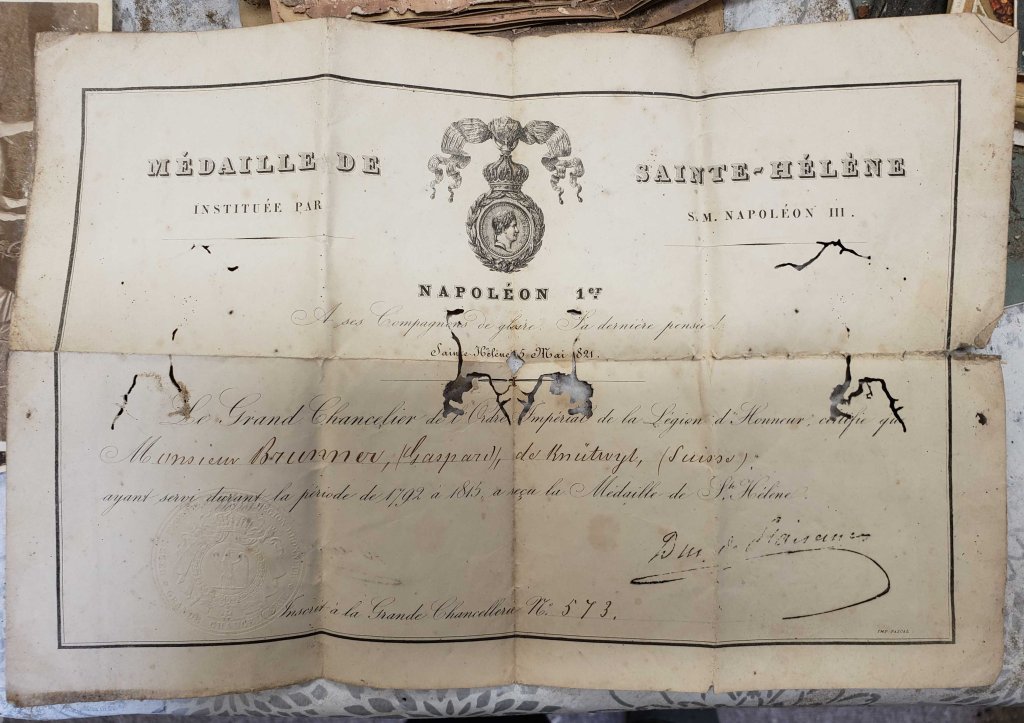 MÉDAILLE DE SAINTE-HÉLÈNE
INSTITUÉE PAR S.M. NAPOLÉON III.
NAPOLÉON 1er
A ses Compagnons de gloire. Sa dernière pensée!
Sainte Hélène 5 Mai 1821.
Le Grand Chancelier de l'Ordre Impérial de la Légion d'Honneur, certifie que
Monsieur Brunner, (Gaspard), de Knütwyl, (Suisse).
ayant servi durant la période de 1792 à 1815, a reçu la Médaille de Ste Hélène.
Duc de Plaisance
Inscrit à la Grande Chancellerie No 573.
IMP. PASCAL